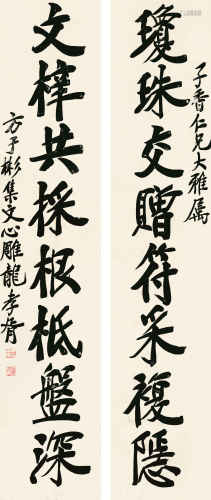 瓊珠交贈符采複隱
子香仁兄大雅属
文梓共採根柢盤深
方于彬集文心雕龍孝胥